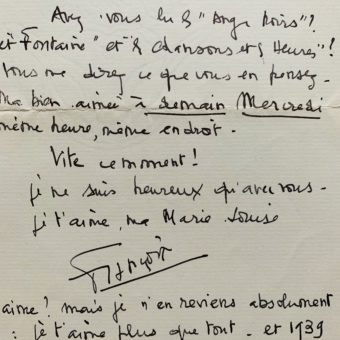 Avez-vous lu les "Anges Noirs"?
et Fontaine" et les chansons et les Heures"!
Vous me direz ce que vous en pensez.
Ma bien aimée à demain Mercredi
même heure, même endroit.
Vite ce moment!
je ne suis heureux qu'avec vous.
Je t'aime, ma Marie Louise
François
aime! mais je n'en reviens absolument
: je t'aime plus que tout. et 1939